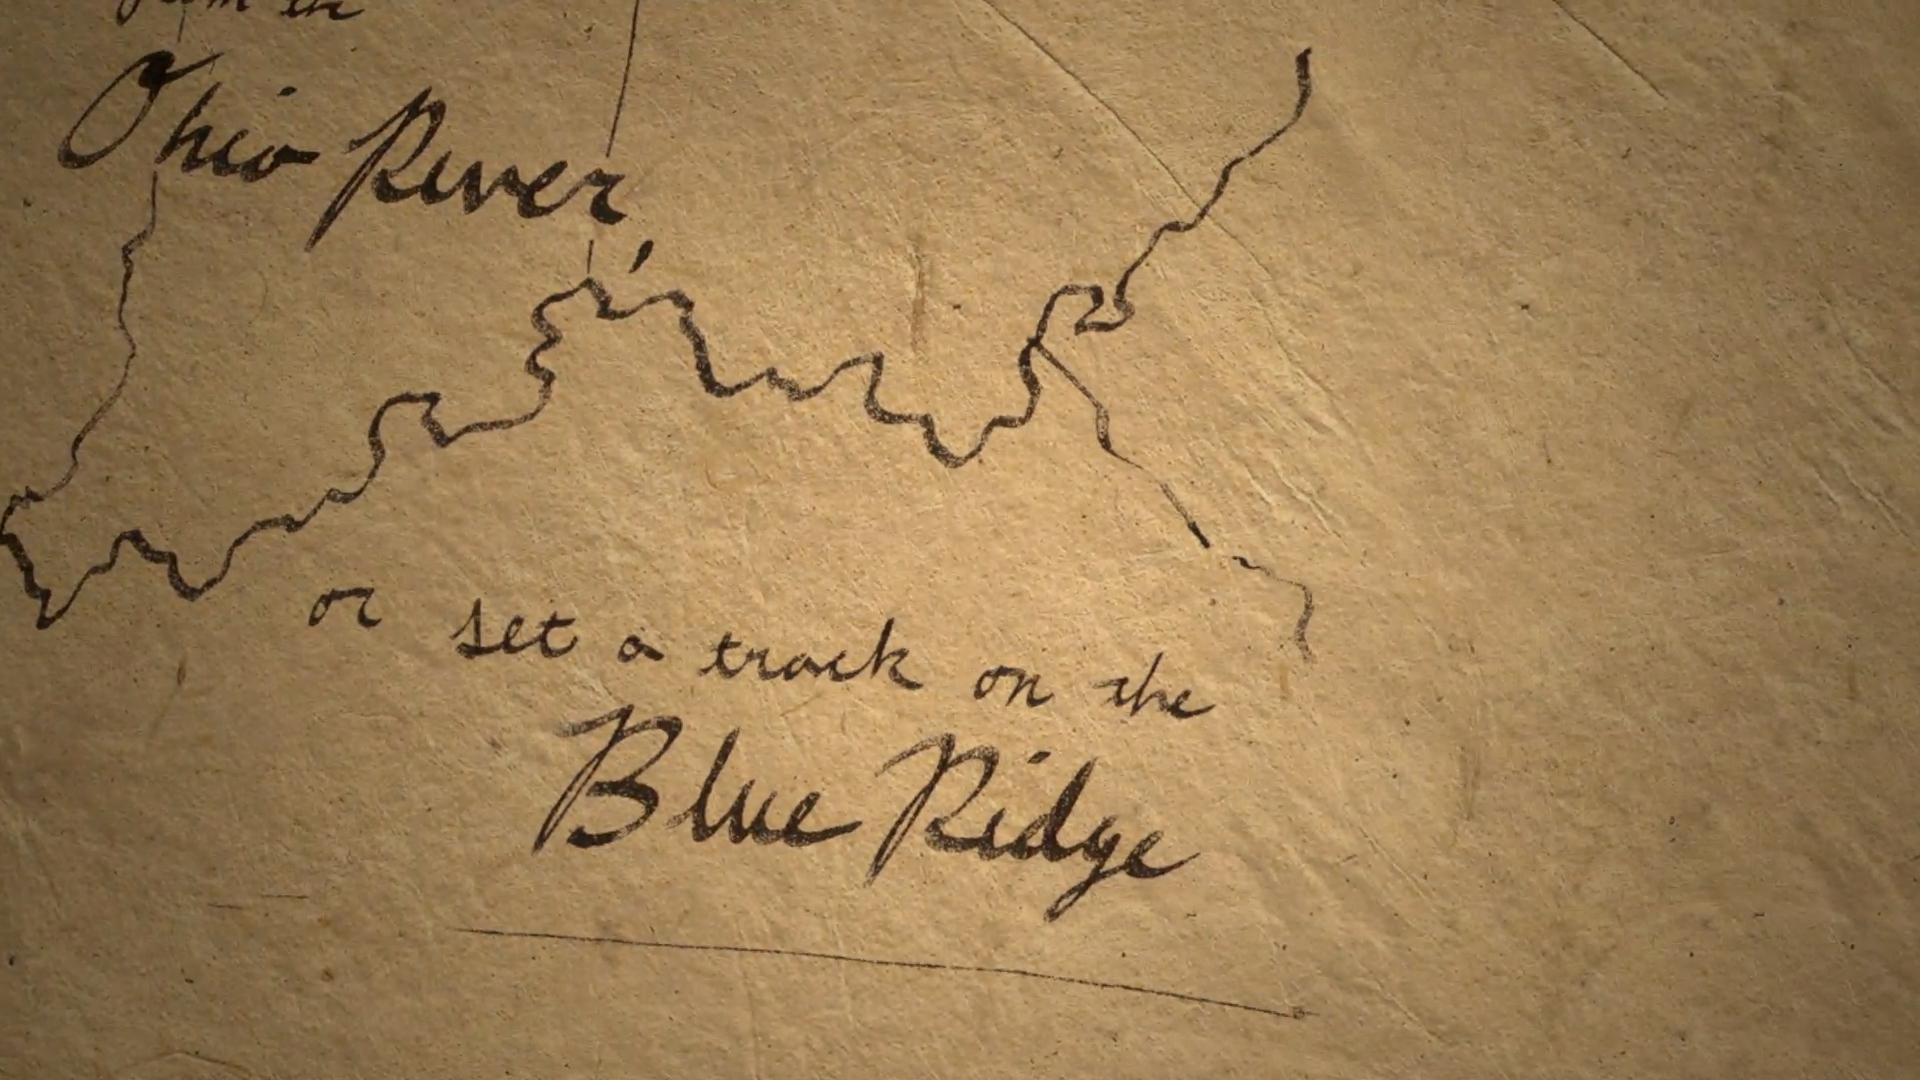 from the
Ohio River,
or set a track on the
Blue Ridge